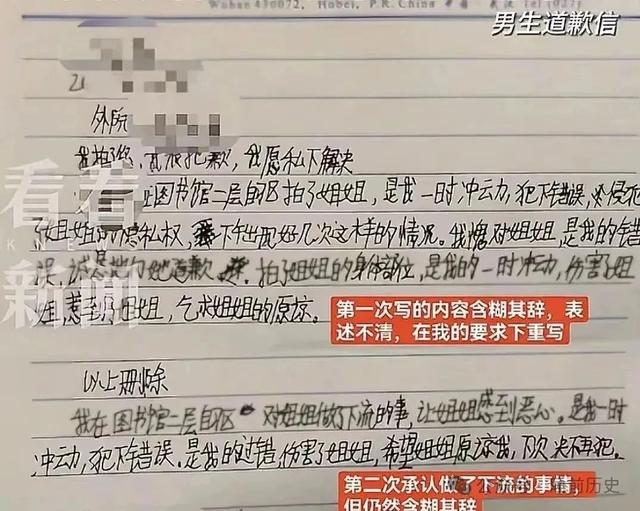 Wuhan 430072, Hubei, P.R. China 中国·武汉 Tel (027)
男生道歉信
21
外院
我拍了您,我很抱歉,我愿私下解决
在图书馆二层B区拍了姐姐,是我一时冲动,犯下错误,侵犯
了姐姐的隐私权,下午出现好几次这样的情况。我愧对姐姐,是我的错
误,诚恳地向她道歉,拍了姐姐的身体部位,是我的一时冲动,伤害了姐
姐,惹到了姐姐,乞求姐姐的原谅。
第一次写的内容含糊其辞,表
述不清,在我的要求下重写
看看
KNEWS
新闻
以上删除
我在图书馆二层B区对姐姐做了下流的事,让姐姐感到恶心。是我一时
冲动,犯下错误,是我的过错,伤害了姐姐,希望姐姐原谅我,下次决不再犯。
第二次承认做了下流的事情,
但仍然含糊其辞
公众号
前历史